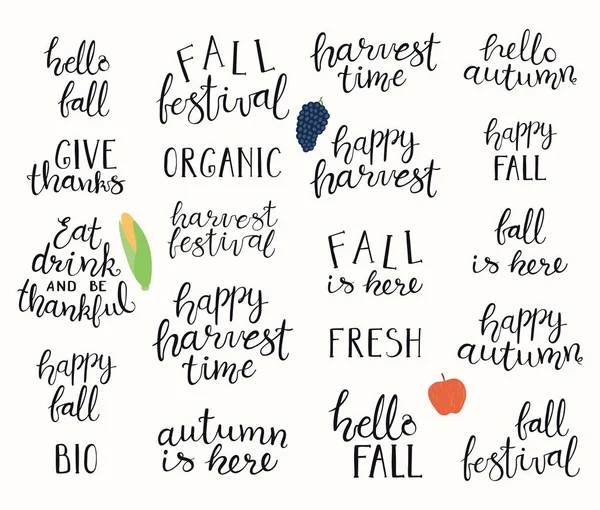 hello
fall
GIVE
thanks
Eat
drink
AND BE
thankful
happy
fall
BIO
FALL
festival
ORGANIC
harvest
festival
happy
harvest
time
autumn
is here
harvest
time
happy
harvest
FALL
is here
FRESH
hello
FALL
hello
autumn
happy
FALL
fall
is here
happy
autumn
fall
festival